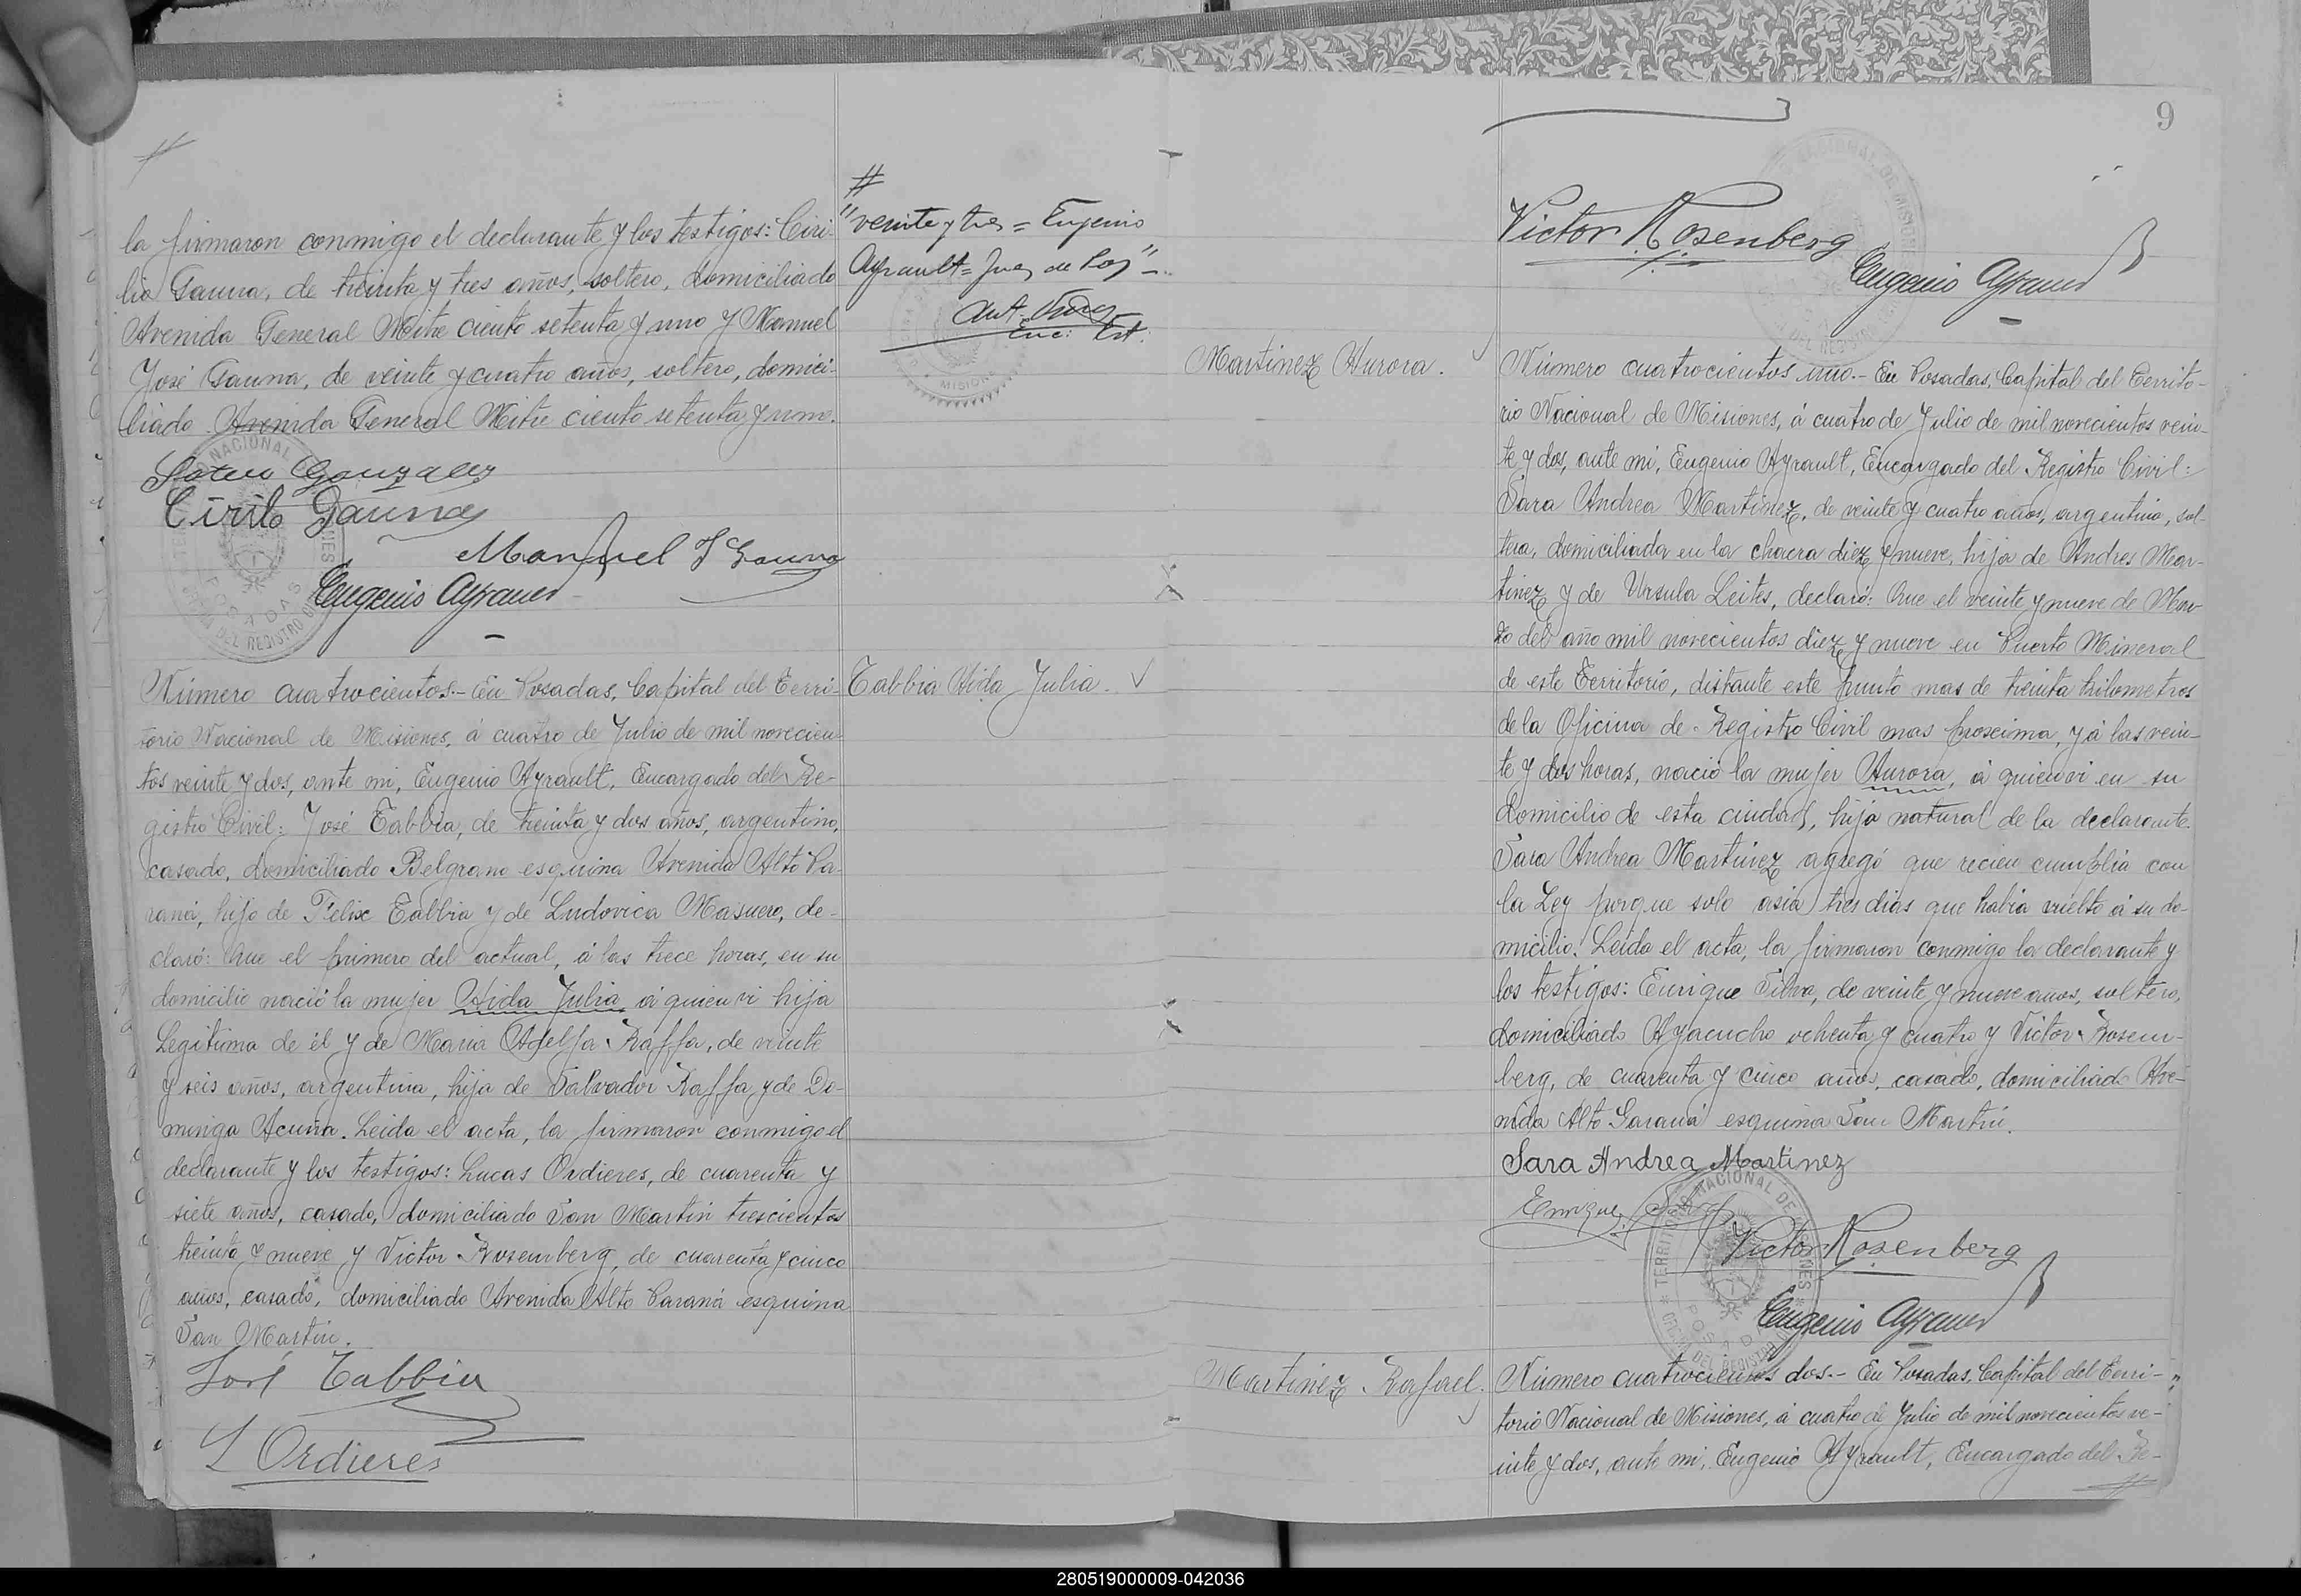 la firmaron conmigo el declarante y los testigos: Ciri-
lio Gauna, de treinta y tres años, soltero, domiciliado
Avenida General Mitre ciento setenta y uno y Manuel
José Gauna, de veinte y cuatro años, soltero, domici-
liado Avenida General Mitre ciento setenta y uno.
Gonzalez
Cirilo Gauna
Manuel J Gauna
Eugenio Ayrault
#
"veinte y tres = Eugenio
Ayrault = Juez de Paz" -
Enc: Est.
Número cuatrocientos.- En Posadas, Capital del Terri-
torio Nacional de Misiones, á cuatro de Julio de mil novecien-
tos veinte y dos, ante mi, Eugenio Ayrault, Encargado del Re-
gistro Civil: José Tabbia, de treinta y dos años, argentino,
casado, domiciliado Belgrano esquina Avenida Alto Pa-
raná, hijo de Felix Tabbia y de Ludovica Masuero, de-
claró: Que el primero del actual, á las trece horas, en su
domicilio nació la mujer Aida Julia á quien vi hija
Legitima de él y de Maria Adelfa Raffa, de veinte
y seis años, argentina, hija de Salvador Raffa y de Do-
minga Acuña. Leida el acta, la firmaron conmigo el
declarante y los testigos: Lucas Ordieres, de cuarenta y
siete años, casado, domiciliado San Martin trescientos
treinta y nueve y Victor Rosemberg, de cuarenta y cinco
años, casado, domiciliado Avenida Alto Paraná esquina
San Martin.
José Tabbia
L Ordieres
Tabbia Aida Julia.
9
Victor Rosenberg
Eugenio Ayrault
Martinez Aurora.
Número cuatrocientos uno.- En Posadas, Capital del Territo-
rio Nacional de Misiones, á cuatro de Julio de mil novecientos vein-
te y dos, ante mi, Eugenio Ayrault, Encargado del Registro Civil:
Sara Andrea Martinez, de veinte y cuatro años, argentina, sol-
tera, domiciliada en la chacra diez y nueve, hija de Andres Mar-
tinez y de Ursula Leites, declaró: Que el veinte y nueve de Mar-
zo del año mil novecientos diez y nueve en Puerto Mineral
de este Territorio, distante este punto mas de treinta kilometros
de la Oficina de Registro Civil mas procsima, y á las vein-
te y dos horas, nació la mujer Aurora, á quien vi en su
domicilio de esta ciudad, hija natural de la declarante.
Sara Andrea Martinez agregó que recien cumplia con
la Ley porque solo asia tres dias que habia vuelto á su do-
micilio. Leida el acta, la firmaron conmigo la declarante y
los testigos: Enrique Silva, de veinte y nueve años, soltero,
domiciliado Ayacucho ochenta y cuatro y Victor Rosem-
berg, de cuarenta y cinco años, casado, domiciliado Ave-
nida Alto Paraná esquina San Martin.
Sara Andrea Martinez
Enrique Silva
Victor Rosenberg
Eugenio Ayrault
Martinez Rafael.
Número cuatrocientos dos.- En Posadas, Capital del Terri-
torio Nacional de Misiones, á cuatro de Julio de mil novecientos ve-
inte y dos, ante mi, Eugenio Ayrault, Encargado del Re-
280519000009-042036